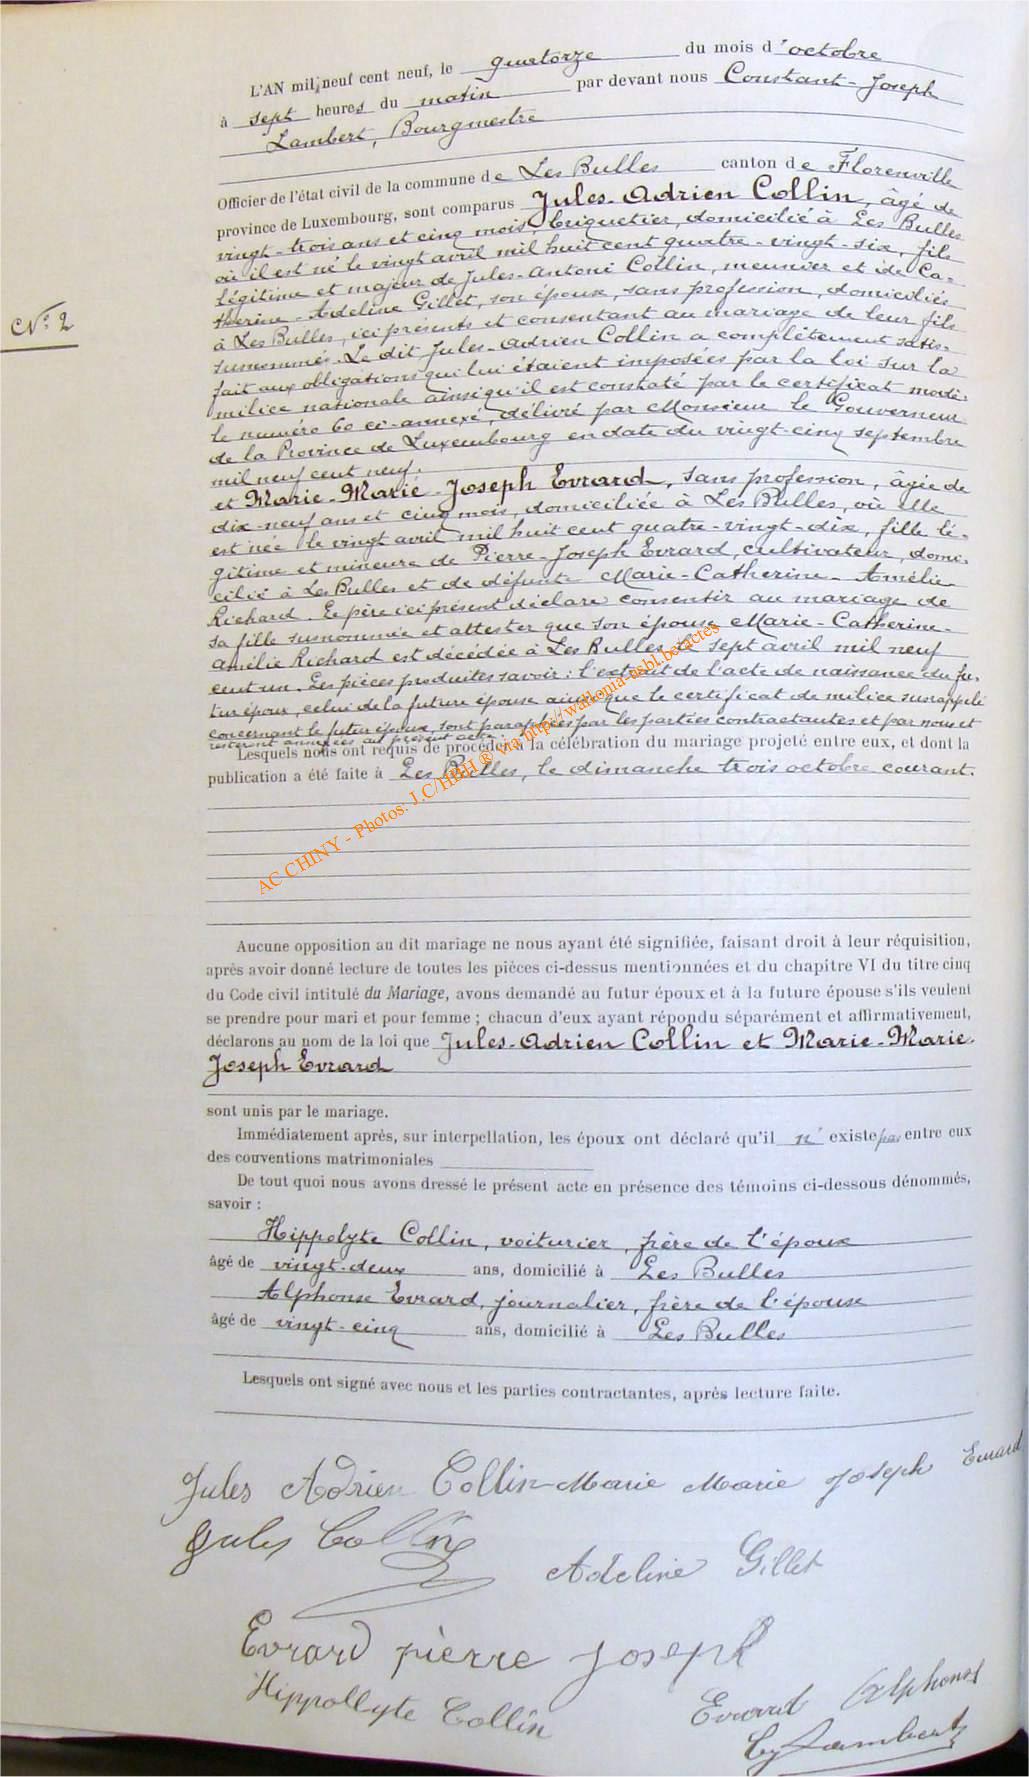 L'AN mil neuf cent neuf, le quatorze du mois d'octobre
à sept heures du matin par devant nous Constant-Joseph
Lambert, Bourgmestre
Officier de l'état civil de la commune de Les Bulles canton de Florenville
province de Luxembourg, sont comparus Jules-Adrien Collin, âgé de
vingt-trois ans et cinq mois, briquetier, domicilié à Les Bulles
où il est né le vingt avril mil huit cent quatre-vingt-six, fils
légitime et majeur de Jules-Antoni Collin, meunier et de Ca-
therine-Adeline Gillet, son épouse, sans profession, domiciliés
à Les Bulles, ici présents et consentant au mariage de leur fils
susnommé. Le dit Jules-Adrien Collin a complètement satis-
fait aux obligations qui lui étaient imposées par la loi sur la
milice nationale ainsi qu'il est constaté par le certificat modè-
le numéro 60 ci-annexé, délivré par Monsieur le Gouverneur
de la Province de Luxembourg en date du vingt-cinq septembre
mil neuf cent neuf.
N° 2
et Marie-Marie-Joseph Evrard, sans profession, âgée de
dix-neuf ans et cinq mois, domiciliée à Les Bulles, où elle
est née le vingt avril mil huit cent quatre-vingt-dix, fille lé-
gitime et mineure de Pierre-Joseph Evrard, cultivateur, domi-
cilié à Les Bulles et de défunte Marie-Catherine-Amélie
Richard. Le père ici présent déclare consentir au mariage de
sa fille susnommée et attester que son épouse Marie-Catherine-
Amélie Richard est décédée à Les Bulles, le sept avril mil neuf
cent un. Les pièces produites savoir: l'extrait de l'acte de naissance du fu-
tur époux, celui de la future épouse ainsi que le certificat de milice susrappelé
concernant le futur époux, sont paraphées par les parties contractantes et par nous et
resteront annexées au présent acte.
Lesquels nous ont requis de procéder à la célébration du mariage projeté entre eux, et dont la
publication a été faite à Les Bulles, le dimanche trois octobre courant.
AC CHINY - Photos: J.C/HBH ® via http://wallonia-asbl.be/actes
Aucune opposition au dit mariage ne nous ayant été signifiée, faisant droit à leur réquisition,
après avoir donné lecture de toutes les pièces ci-dessus mentionnées et du chapitre VI du titre cinq
du Code civil intitulé du Mariage, avons demandé au futur époux et à la future épouse s'ils veulent
se prendre pour mari et pour femme ; chacun d'eux ayant répondu séparément et affirmativement,
déclarons au nom de la loi que Jules-Adrien Collin et Marie-Marie-
Joseph Evrard
sont unis par le mariage.
Immédiatement après, sur interpellation, les époux ont déclaré qu'il n'existe pas entre eux
des conventions matrimoniales
De tout quoi nous avons dressé le présent acte en présence des témoins ci-dessous dénommés,
savoir :
Hippolyte Collin, voiturier, frère de l'époux
âgé de vingt-deux ans, domicilié à Les Bulles
Alphonse Evrard, journalier, frère de l'épouse
âgé de vingt-cinq ans, domicilié à Les Bulles
Lesquels ont signé avec nous et les parties contractantes, après lecture faite.
Jules Adrien Collin Marie Marie Joseph Evrard
Jules Collin
Adeline Gillet
Evrard pierre Joseph
Hippollyte Collin
Evrard Alphonse
Lambert